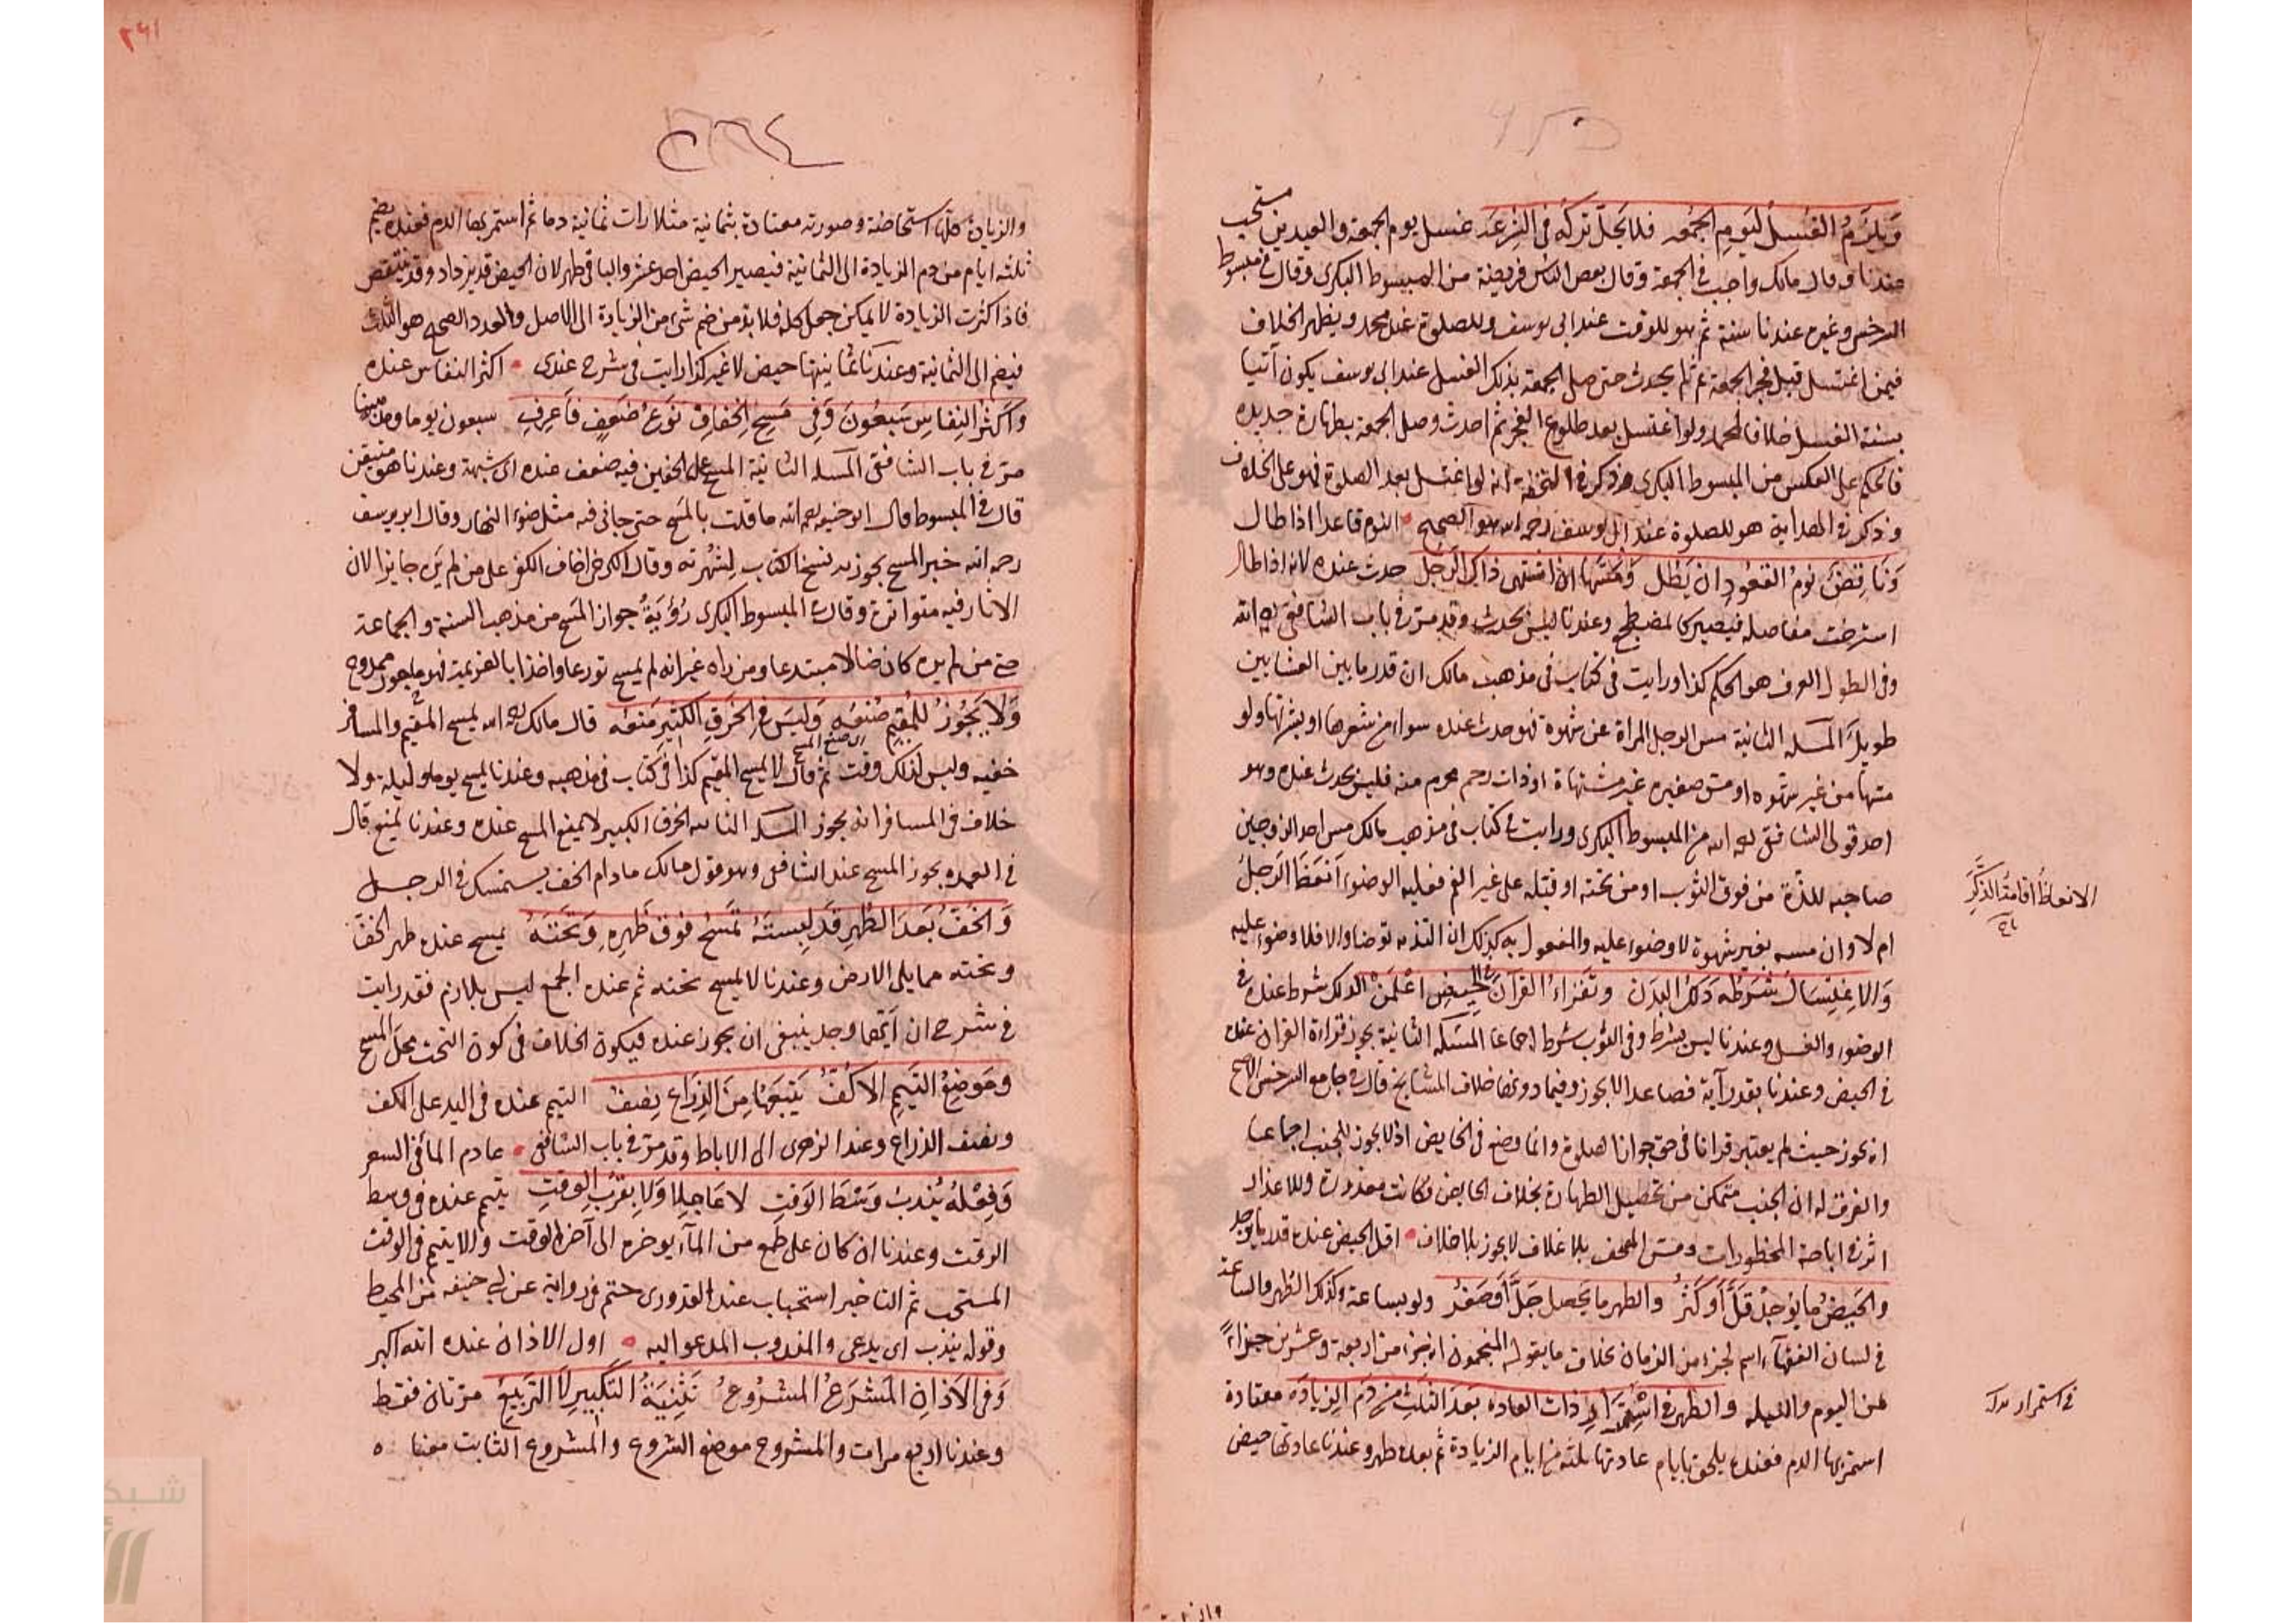 وَيلزَمُ الغُسلُ ليَومِ الجُمُعه فلا يَحِلُّ تركُهُ فى الشِرعَه غسل يوم الجمعة والعيدين مستحب
عندنا وقال مالك واجب فى الجمعة وقال بعض الناس فريضة من المبسوط البكرى وقال فى مبسوط
السرخسى وغيره عندنا سنة ثم هو للوقت عند ابى يوسف وللصلوة عند محمد ويظهر الخلاف
فيمن اغتسل قبل فجر الجمعة ثم لم يحدث حتى صلى الجمعة بذلك الغسل عند ابى يوسف يكون آتيا
بسنة الغسل خلافا لمحمد ولو اغتسل بعد طلوع الفجر ثم احدث وصلى الجمعة بطهارة جديده
فالحكم على العكس من المبسوط البكرى وذكر فى التحفة انه لو اغتسل بعد الصلوة فهو على الخلاف
وذكر فى الهداية هو للصلوة عند ابى يوسف رحمه الله هو الصحيح النوم قاعدا اذا طال
وَناقِضٌ نومُ القعُودِ ان يَطُل وَمَسُّها ان اشتهى ذاك الرَجُل حدث عنده لانه اذا طال
استرخت مفاصله فيصير كالمضطجع وعندنا ليس بحدث وقد مرّ فى باب الشافعى رحمه الله
وفى الطول العرف هو الحكم كذا ورايت فى كتاب فى مذهب مالك ان قدر ما بين العشايين
طويل المسئلة الثانية مس الرجل المراة عن شهوة فهو حدث عنده سواء مس شعرها او بشرتها ولو
مسها من غير شهوه او مس صغيره غير مشتهاة او ذات رحم محرم منه فليس بحدث عنده وهو
احد قولى الشافعى رحمه الله من المبسوط البكرى ورايت فى كتاب فى مذهب مالك مس احد الزوجين
صاحبه للذّة من فوق الثوب او من تحته او قبله على غير الفم فعليه الوضوء اَنعَظَ الرَجلُ
ام لا وان مسه بغير شهوة لا وضوء عليه والمفعول به كذلك ان التذ به توضا والا فلا وضوء عليه
وَالاِغتِسالُ شَرطُه دَلكُ البدَن وتَقراءُ القرآنَ فى الحَيضِ اعلَمَن الدلك شرط عنده فى
الوضوء والغسل وعندنا ليس بشرط وفى الثوب شرط اجماعا المسئلة الثانية يجوز قراءة القران عنده
فى الحيض وعندنا بقدر آية فصاعدا لا يجوز وفيما دونها خلاف المشايخ قال فى جامع السرخسى الاصح
انه يجوز حيث لم يعتبر قرانا فى حق جواز الصلوة وانما وضع فى الحايض اذ لا يجوز للجنب اجماعا
والفرق له ان الجنب متمكن من تحصيل الطهارة بخلاف الحايض فكانت معذورة وللاعذار
اثر فى اباحة المحظورات ومس المصحف بلا غلاف لا يجوز بلا خلاف اقل الحيض عنده قدر ما يوجد
والحَيضُ ما يُوجدُ قلَّ اَو كَثُر والطهر ما يحصل جَلَّ اَو صَغُر ولو بساعة وكذلك الطهر والساعة
فى لسان الفقهاء اسم لجزء من الزمان بخلاف ما يقوله المنجمون انه جزء من اربعة وعشرين جزاءً
من اليوم والليله والطهر فى ذات العاده بَعدَ الثلثِ من دَم الزياده معتادة
استمر بها الدم فعنده يلحق بايام عادتها ثلثة من ايام الزيادة ثم بعده طهر وعندنا عادتها حيض
الانعاظ اقامة الذكر
فى استمرار
٢٦١
٢٦٤
والزيادة كلها استحاضة وصورته معتادة بثمانية مثلا رات ثمانية دما ثم استمر بها الدم فعنده يضم
ثلثة ايام من دم الزيادة الى الثمانية فيصير الحيض احد عشر والباقى طهر لان الحيض قد يزداد وقد ينتقص
فاذا كثرت الزيادة لا يمكن جعل كله فلا بد من ضم شىء من الزيادة الى الاصل والعدد الصحيح هو الثلث
فيضم الى الثمانية وعندنا ثمانيتها حيض لا غير كذا رايت فى شرح عندى اكثر النفاس عنده
وَاكثَرُ النِفاسِ سَبعُونَ وَفى مَسحِ الخِفافِ نَوعُ ضَعفٍ فاَعرِفِ سبعون يوما وعندنا
مرّ فى باب الشافعى المسئلة الثانية المسح على الخفين فيه ضعف عنده اى شبهة وعندنا هو متيقن
قال فى المبسوط قال ابو حنيفه رحمه الله ما قلت بالمسح حتى جانى فيه مثل ضوء النهار وقال ابو يوسف
رحمه الله خبر المسح يجوز به نسخ الكتاب لشُهرته وقال الكرخى اخاف الكفر على من لم يَرَه جايزا لان
الاثار فيه متواترة وقال فى المبسوط البكرى رُؤيَةُ جواز المسح من مذهب السنة والجماعة
حتى من لم يره كان ضالا مبتدعا ومن راه غير انه لم يمسح تورعا واخذا بالعزيمة فهو ممدوح
وَلا يَجُوزُ للمُقيمِ صُنعُه وَليسَ فى الخرقِ الكثيرِ مَنعُه قال مالك رحمه الله يمسح المقيم والمسافر
خفيه وليس لذلك وقت ثم قال لا يمسح المقيم كذا فى كتاب فى مذهبه وعندنا يمسح يوما وليلة ولا
خلاف فى المسافر انه يجوز المسئلة الثانيه الخرق الكبير لا يمنع المسح عنده وعندنا يمنع قال
فى العمده يجوز المسح عند الشافعى وهو قول مالك ما دام الخف يستمسك فى الرجل
وَالخُفُّ بَعدَ الطُهرِ قَد لَبِستَهُ تَمسَحُ فوقَ ظَهرِهِ وَتحتَهُ يمسح عنده ظهر الخف
وتحته مما يلى الارض وعندنا لا يمسح تحته ثم عنده الجمع ليس بلازم فقد رايت
فى شرح ان ايهما وجد ينبغى ان يجوز عنده فيكون الخلاف فى كون التحت محل المسح
وَمَوضِعُ التيَمِ الاكُفُّ يَتبَعُها مِنَ الذِراعِ نِصفُ التيمم عنده فى اليد على الكف
ونصف الذراع وعند الزهرى الى الاباط وقد مرّ فى باب الشافعى عادم الماء فى السفر
وَفِعلُهُ يُندَبُ وَسْطَ الوَقتِ لا عَاجِلا وَلا بِقُربِ الوَقتِ يتيمم عنده فى وسط
الوقت وعندنا ان كان على طمع من الماء يوخره الى آخر الوقت والا يتيمم فى الوقت
المستحب ثم التاخير استحباب عند القدورى حتم فى رواية عن ابى حنيفه من المحيط
وقوله يندب اى يدعى والمندوب المدعو اليه اول الاذان عنده الله اكبر
وَفى الاَذانِ المَشرَعُ المَشرُوعُ تَثنِيَةُ التَكبيرِ لا التَربيعُ مرتان فقط
وعندنا اربع مرات والمشروع موضع الشروع والمشروع الثابت معنا